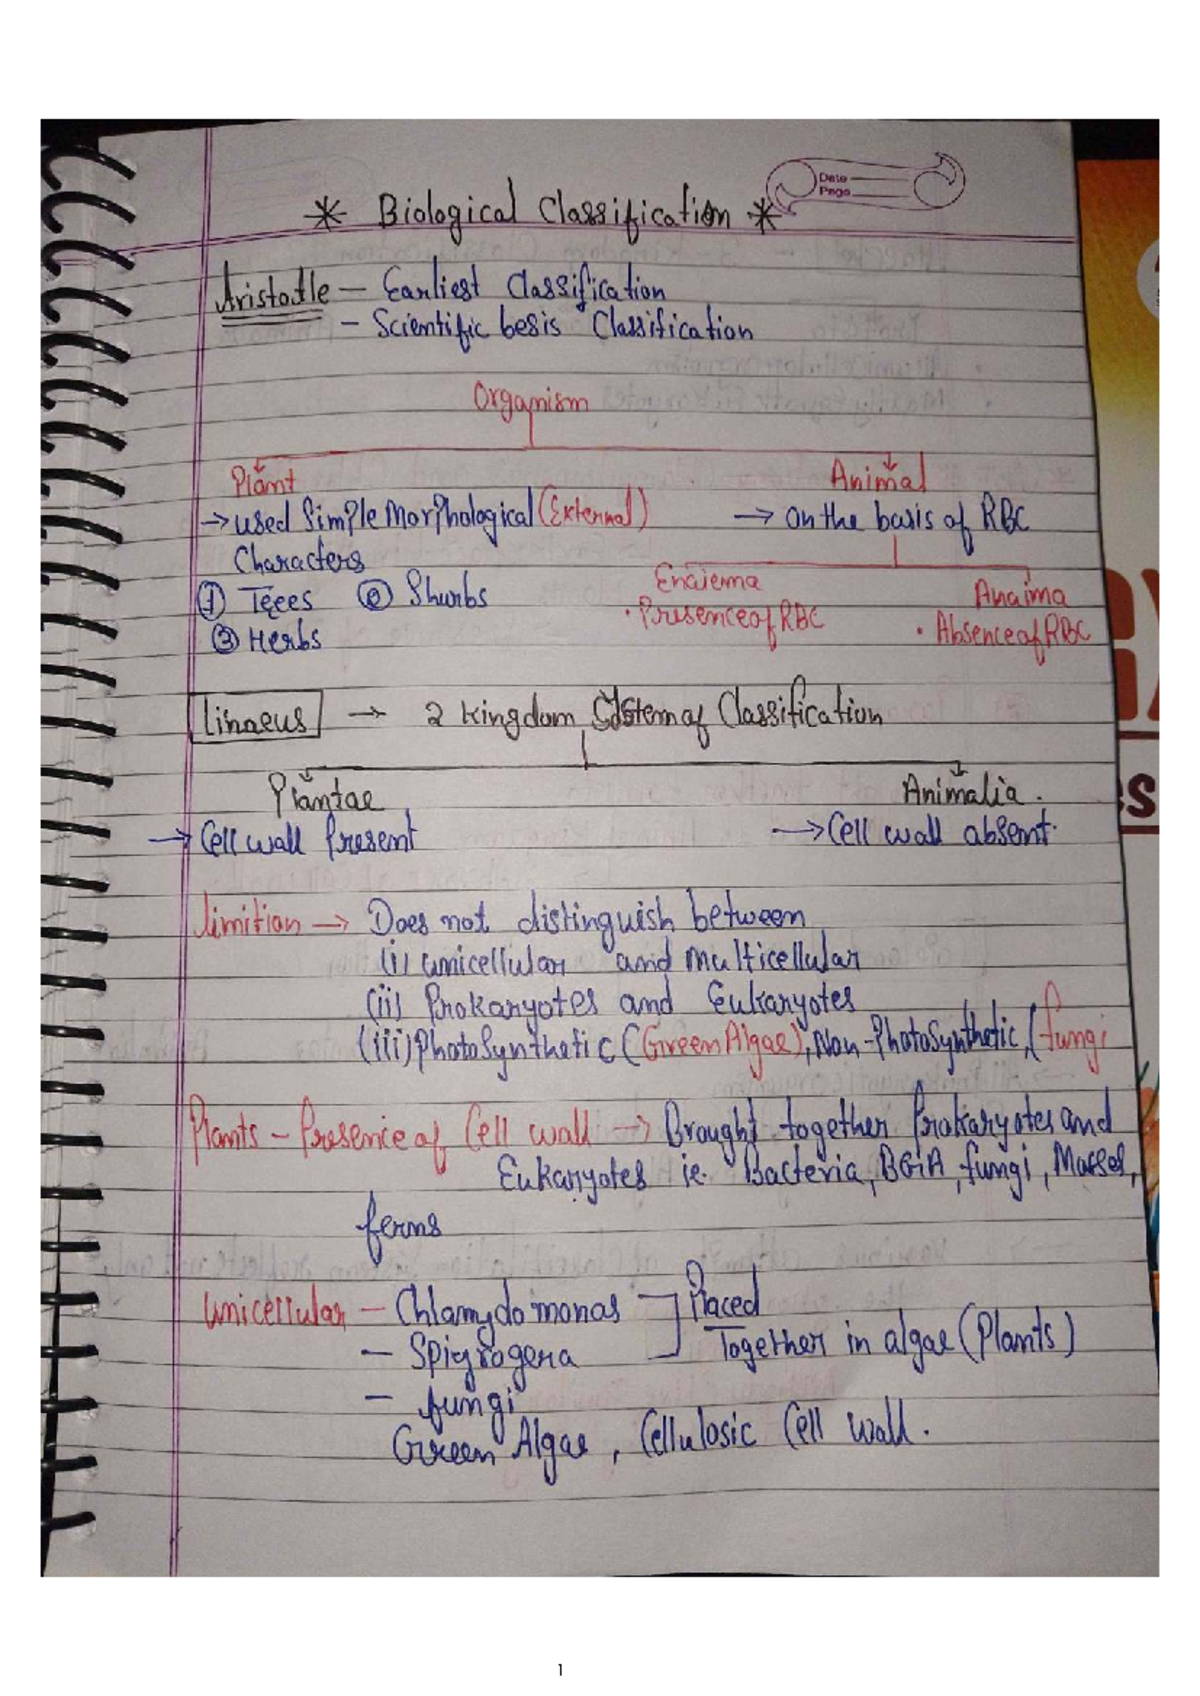 Date
Page
* Biological Classification *
Aristotle — Earliest Classification
— Scientific besis Classification
Organism
Plant Animal
→ used Simple Morphological (External) → on the basis of RBC
Characters
① Trees ② Shurbs Enaiema Anaima
③ Herbs • Presence of RBC • Absence of RBC
Linaeus → 2 Kingdom System of Classification
Plantae Animalia.
→ Cell wall Present → Cell wall absent.
limitian → Does not distinguish between
(i) unicellular and multicellular
(ii) Prokaryotes and Eukaryotes
(iii) PhotoSynthetic (Green Algae), Non-PhotoSynthetic, (fungi
Plants - Presence of Cell wall → Brought together Prokaryotes and
Eukaryotes ie. Bacteria, BGA, fungi, Mosses,
ferns
unicellular — Chlamydomonas Placed
— Spirogera Together in algae (Plants)
— fungi
Green Algae, Cellulosic Cell wall.
1